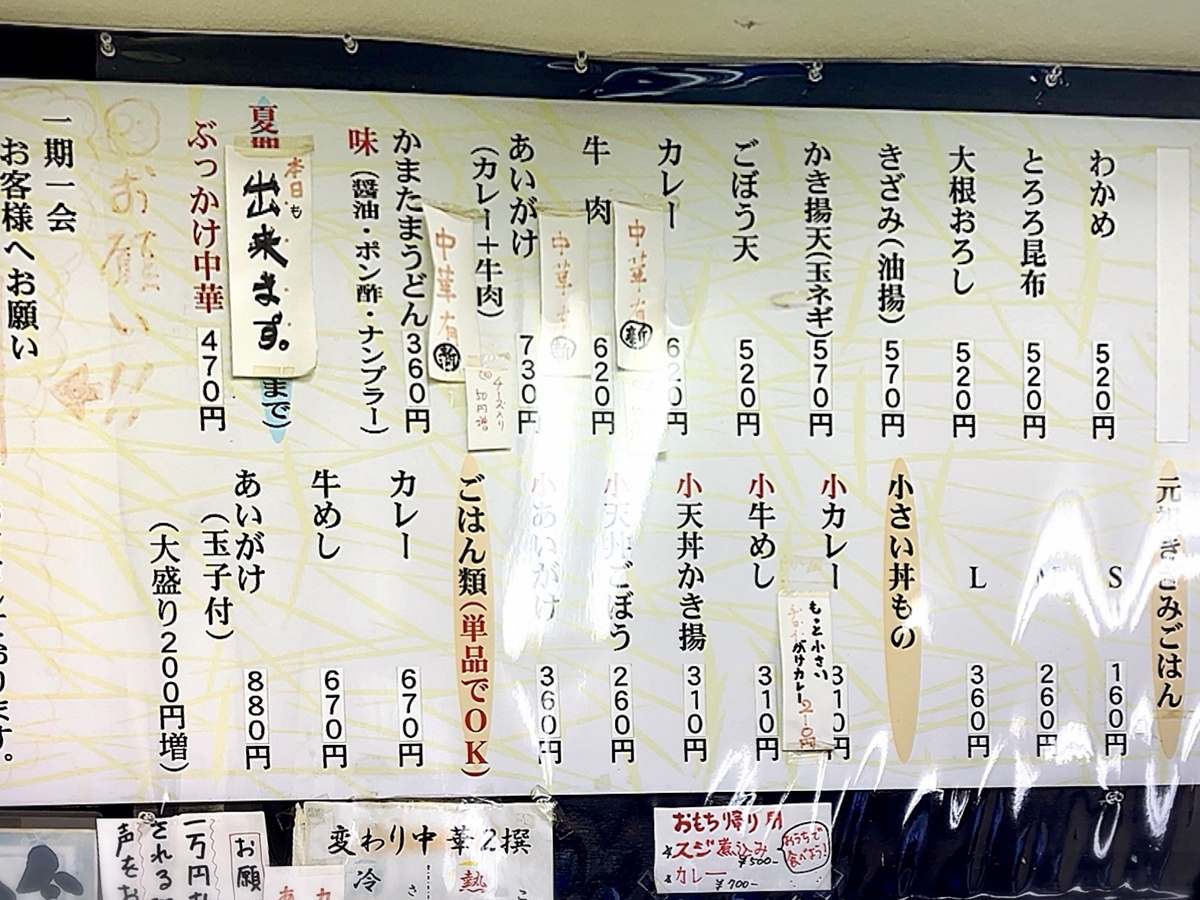 わかめ 520円
とろろ昆布 520円
大根おろし 520円
きざみ(油揚) 570円
かき揚天(玉ネギ) 570円
ごぼう天 520円
カレー 620円
中華有
新
牛肉 620円
中華
新
あいがけ 730円
(カレー+牛肉)
チーズ入り
50円増
中華有
新
かまたまうどん 360円
味(醤油・ポン酢・ナンプラー)
夏期
本日も
出来ます。
まで)
ぶっかけ中華 470円
お願い!!
一期一会
お客様へお願い
ごはん
S 160円
260円
L 360円
小さい丼もの
小カレー 310円
もっと小さい
がけカレー 210円
小牛めし 310円
小天丼かき揚 310円
小天丼ごぼう 260円
小あいがけ 360円
ごはん類(単品でOK)
カレー 670円
牛めし 670円
あいがけ 880円
(玉子付)
(大盛り200円増)
おります。
おもち帰り用
スジ煮込み
¥500-
カレー
¥700-
おうちで
食べよう!
変わり中華2撰
冷
熱
お願
一万円
される
声をお